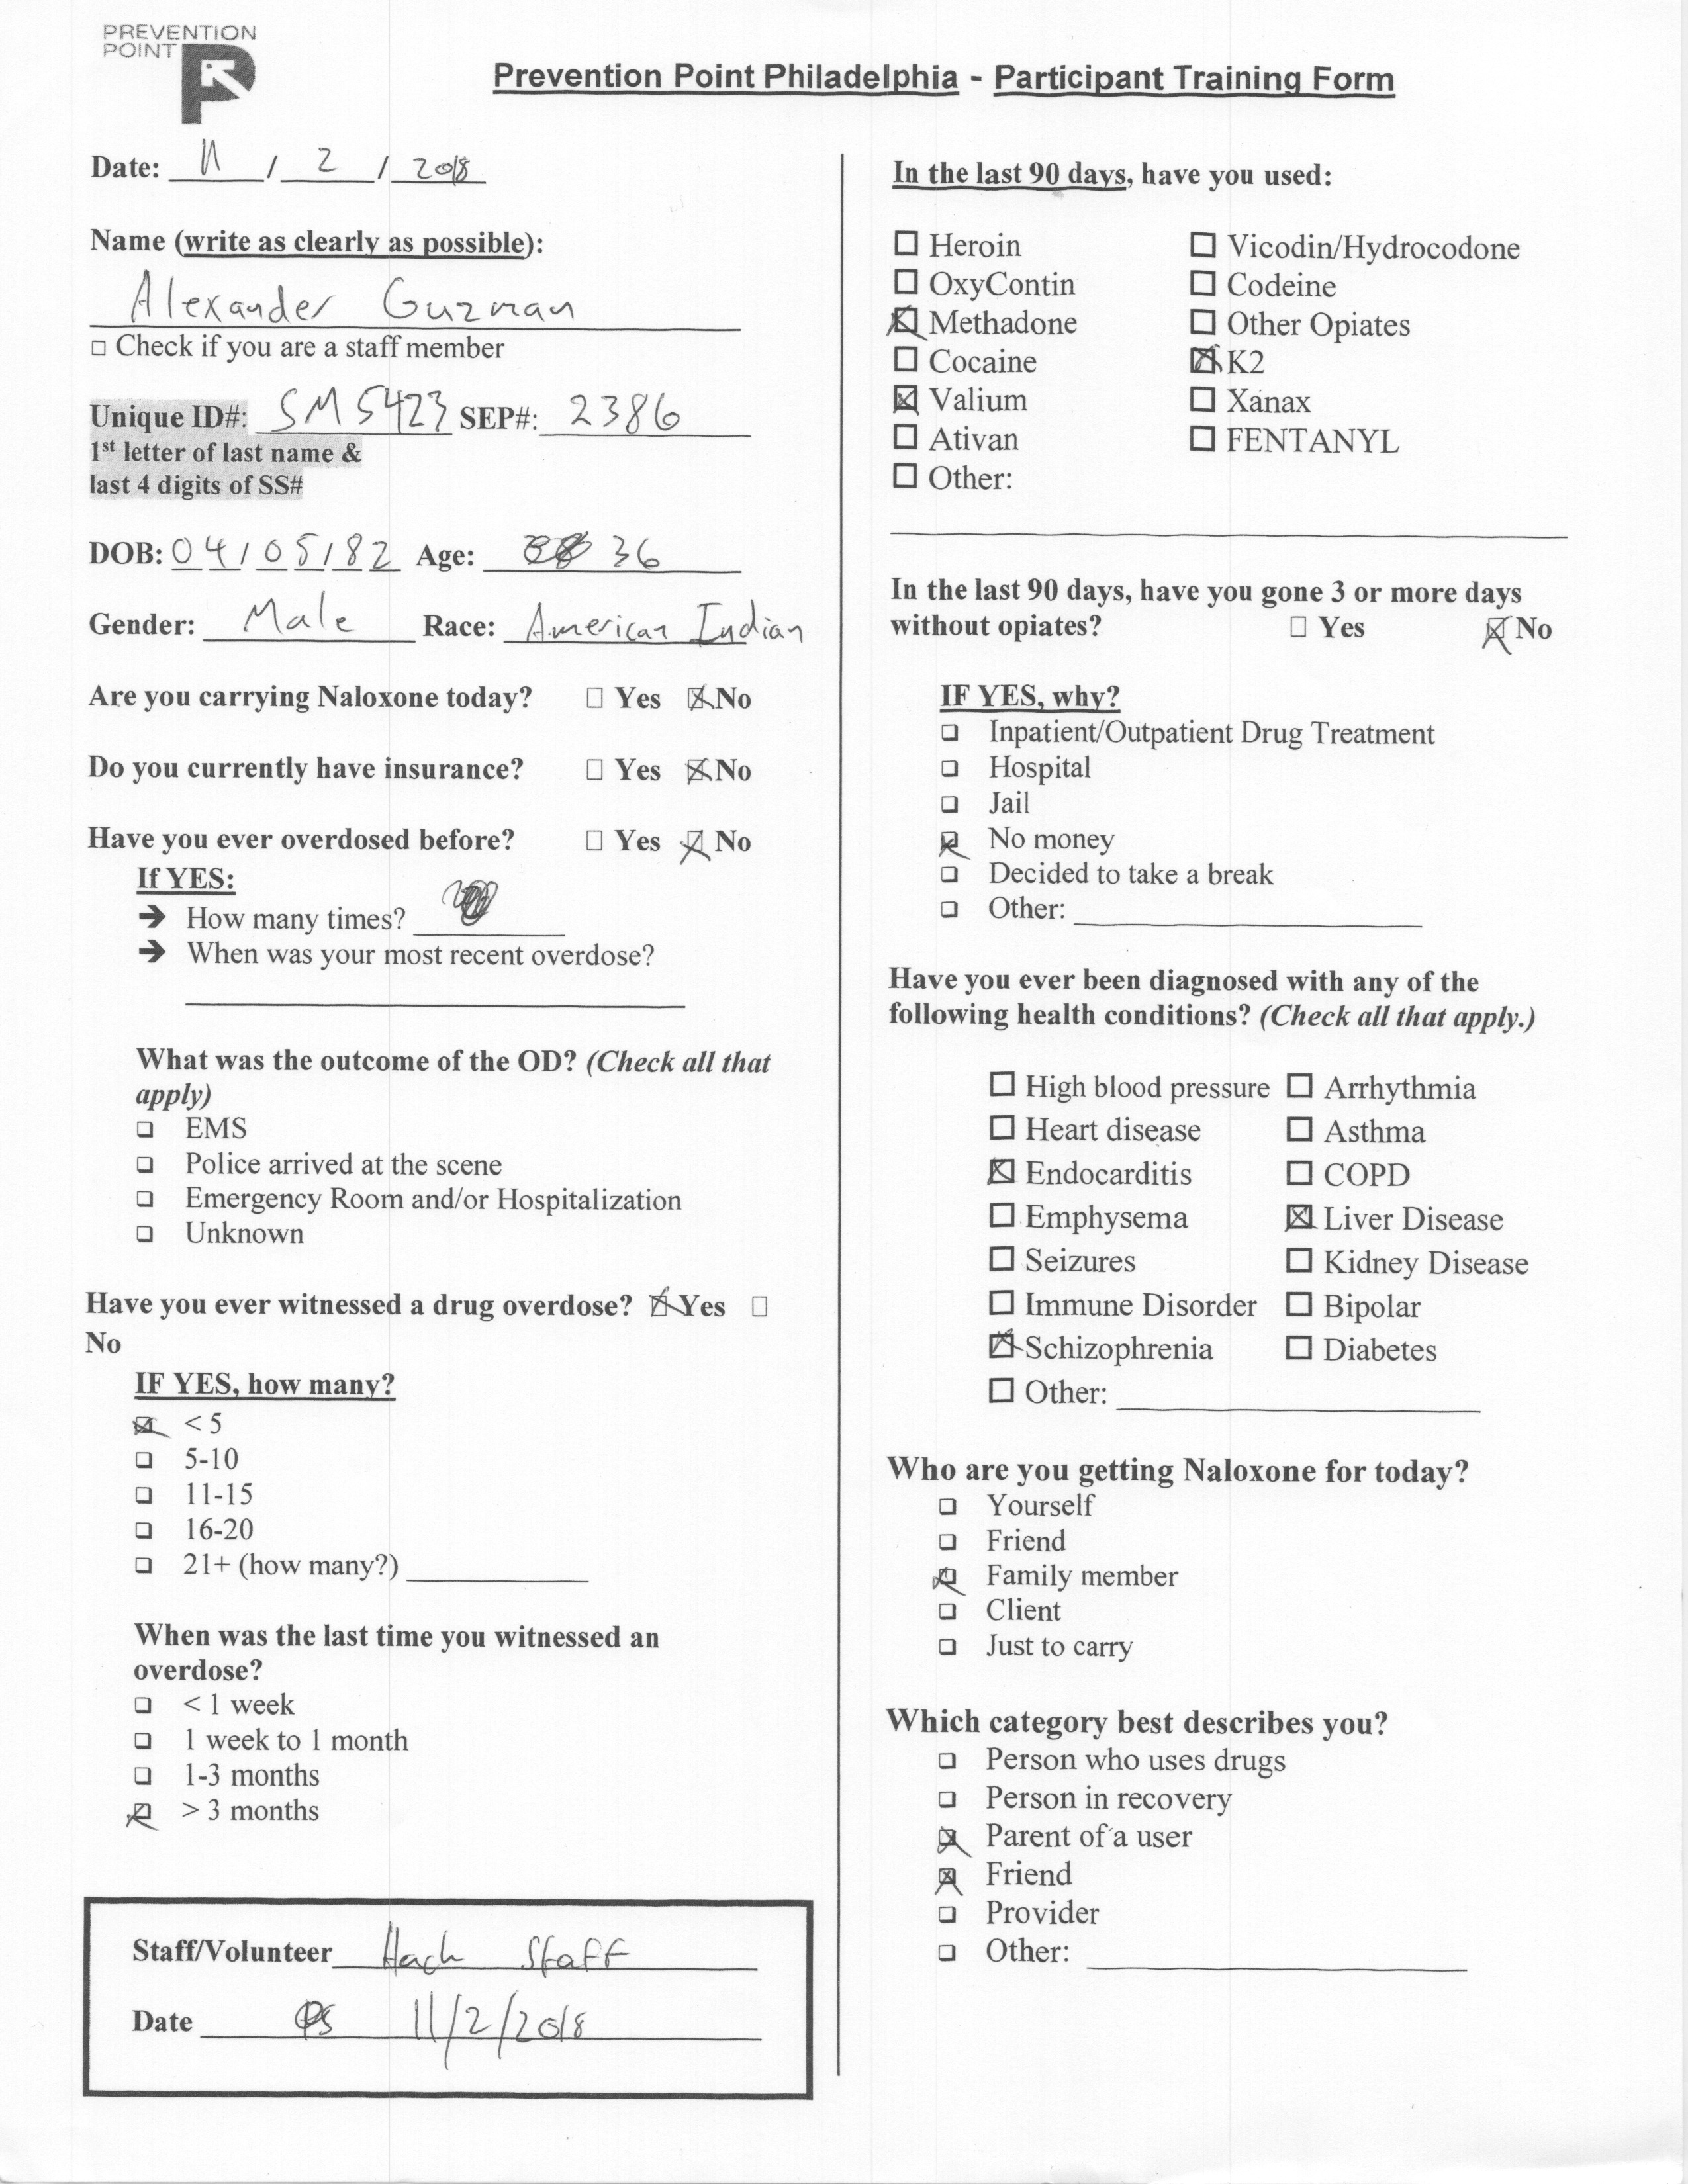 PREVENTION
POINT
Prevention Point Philadelphia - Participant Training Form
Date: 11 / 2 / 2018
Name (write as clearly as possible):
Alexander Guzman
□ Check if you are a staff member
Unique ID#: SM5423 SEP#: 2386
1st letter of last name &
last 4 digits of SS#
DOB: 04/05/82 Age: 36
Gender: Male Race: American Indian
Are you carrying Naloxone today? □ Yes ☒ No
Do you currently have insurance? □ Yes ☒ No
Have you ever overdosed before? □ Yes ☒ No
If YES:
➔ How many times?
➔ When was your most recent overdose?
What was the outcome of the OD? (Check all that
apply)
□ EMS
□ Police arrived at the scene
□ Emergency Room and/or Hospitalization
□ Unknown
Have you ever witnessed a drug overdose? ☒ Yes □
No
IF YES, how many?
☒ < 5
□ 5-10
□ 11-15
□ 16-20
□ 21+ (how many?)
When was the last time you witnessed an
overdose?
□ < 1 week
□ 1 week to 1 month
□ 1-3 months
☒ > 3 months
Staff/Volunteer Hach Staff
Date 11/2/2018
In the last 90 days, have you used:
□ Heroin □ Vicodin/Hydrocodone
□ OxyContin □ Codeine
☒ Methadone □ Other Opiates
□ Cocaine ☒ K2
☒ Valium □ Xanax
□ Ativan □ FENTANYL
□ Other:
In the last 90 days, have you gone 3 or more days
without opiates? □ Yes ☒ No
IF YES, why?
□ Inpatient/Outpatient Drug Treatment
□ Hospital
□ Jail
☒ No money
□ Decided to take a break
□ Other:
Have you ever been diagnosed with any of the
following health conditions? (Check all that apply.)
□ High blood pressure □ Arrhythmia
□ Heart disease □ Asthma
☒ Endocarditis □ COPD
□ Emphysema ☒ Liver Disease
□ Seizures □ Kidney Disease
□ Immune Disorder □ Bipolar
☒ Schizophrenia □ Diabetes
□ Other:
Who are you getting Naloxone for today?
□ Yourself
□ Friend
☒ Family member
□ Client
□ Just to carry
Which category best describes you?
□ Person who uses drugs
□ Person in recovery
☒ Parent of a user
☒ Friend
□ Provider
□ Other: